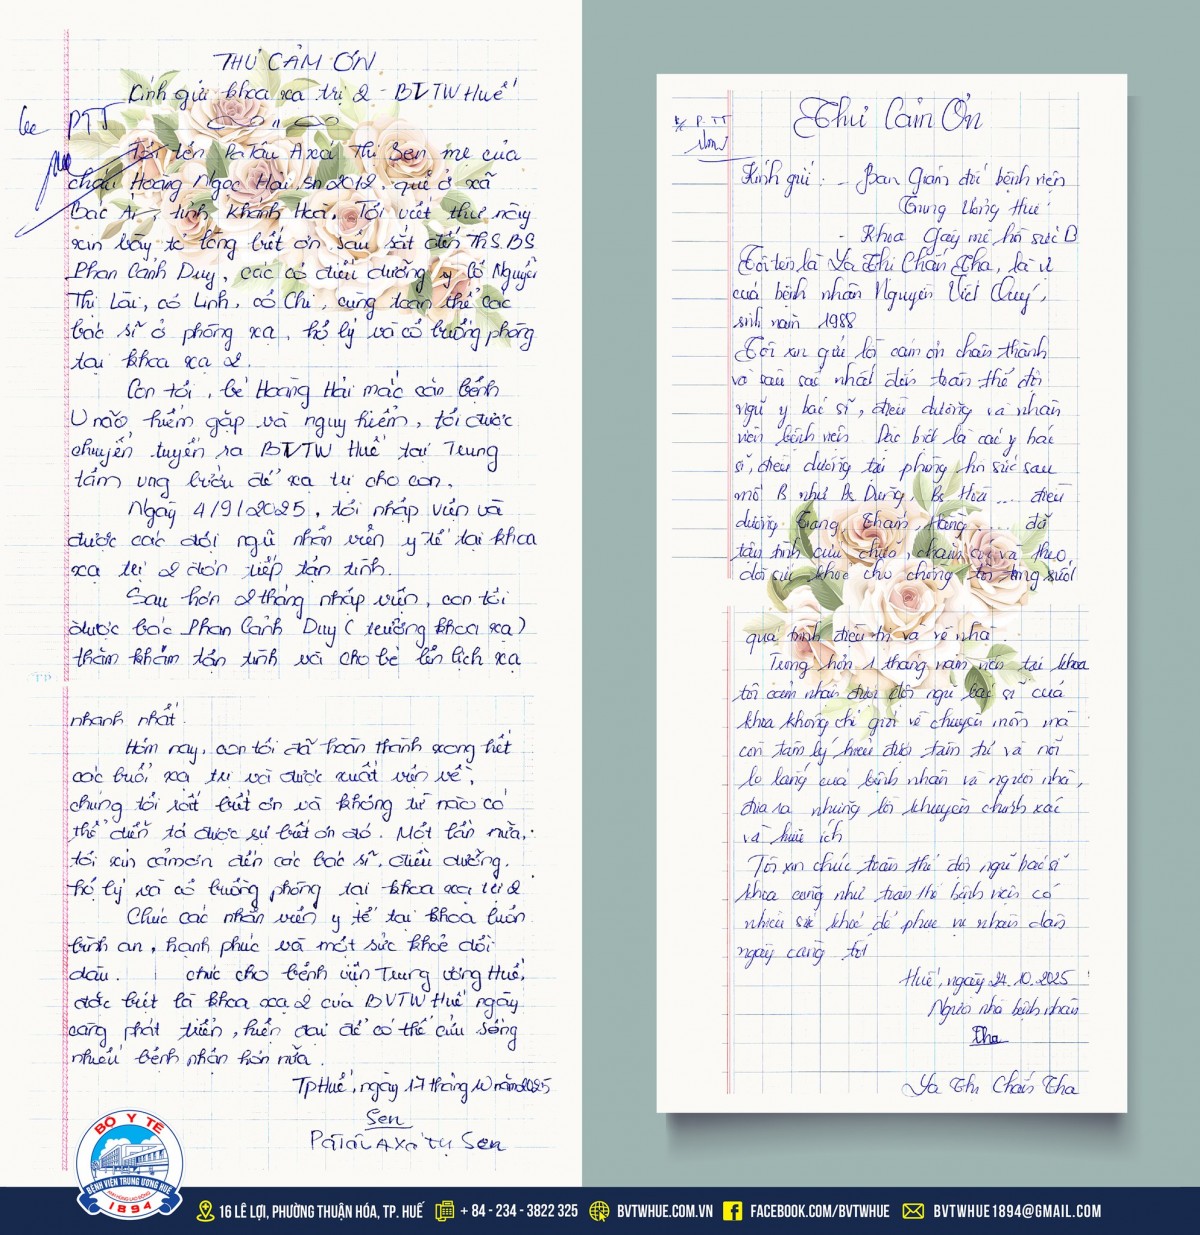 THƯ CẢM ƠN
Kính gửi khoa xạ trị 2 - BVTW Huế
PTT
Tôi tên PaTâu Axá Thị Sen mẹ của
cháu Hoàng Ngọc Hải, sn 2012, quê ở xã
Bác Ái, tỉnh Khánh Hoà, Tôi viết thư này
xin bày tỏ lòng biết ơn sâu sắt đến ThS.BS
Phan Cảnh Duy, các cô điều dưỡng y Cô Nguyễn
Thị Lài, cô Linh, cô Chi, cùng toàn thể các
bác sĩ ở phòng xạ, hộ lý và cô buồng phòng
tại khoa xạ 2.
Con tôi, bé Hoàng Hải mắc căn bệnh
U não hiếm gặp và nguy hiểm, tôi được
chuyển tuyến ra BVTW Huế tại Trung
tâm ung bướu để xạ trị cho con.
Ngày 4/9/2025, tôi nhập viện và
được các đội ngũ nhân viên y tế tại khoa
xạ trị 2 đón tiếp tận tình.
Sau hơn 2 tháng nhập viện, con tôi
được bác Phan Cảnh Duy (trưởng khoa xạ)
thăm khám tận tình và cho bé lên lịch xạ
TP
nhanh nhất.
Hôm nay, con tôi đã hoàn thành xong hết
các buổi xạ trị và được xuất viện về,
chúng tôi rất biết ơn và không từ nào có
thể diễn tả được sự biết ơn đó. Một lần nữa,
tôi xin cảm ơn đến các bác sĩ, điều dưỡng,
hộ lý và cô buồng phòng tại khoa xạ trị 2
Chúc các nhân viên y tế tại khoa luôn
bình an, hạnh phúc và một sức khoẻ dồi
dào. chúc cho bệnh viện Trung ương Huế,
đặc biệt là khoa xạ 2 của BVTW Huế ngày
càng phát triển, hiện đại để có thể cứu sống
nhiều bệnh nhân hơn nữa.
TP Huế, ngày 17 tháng 10 năm 2025
Sen
PaTâu AXá Thị Sen
P. TT
Thư Cảm Ơn
Kính gửi: - Ban Giám đốc bệnh viện
Trung Ương Huế
- Khoa Gây mê hồi sức B
Tôi tên là Ya Thi Chấn Tha, là vợ
của bệnh nhân Nguyễn Viết Quý,
sinh năm 1988
Tôi xin gửi lời cảm ơn chân thành
và sâu sắc nhất đến toàn thể đội
ngũ y bác sĩ, điều dưỡng và nhân
viên bệnh viện. Đặc biệt là các y bác
sĩ, điều dưỡng tại phòng hồi sức sau
mổ B như Bs Dũng, Bs Huế ... điều
dưỡng Trang Thắm, Hằng ... đã
tận tình cứu chữa, chăm sóc và theo
dõi sức khoẻ cho chồng tôi trong suốt
quá trình điều trị và về nhà.
Trong hơn 1 tháng nằm viện tại khoa
tôi cảm nhận được đội ngũ bác sĩ của
khoa không chỉ giỏi về chuyên môn mà
còn tâm lý hiểu được tâm tư và nỗi
lo lắng của bệnh nhân và người nhà,
đưa ra những lời khuyên chính xác
và hữu ích
Tôi xin chúc toàn thể đội ngũ bác sĩ
khoa cũng như toàn thể bệnh viện có
nhiều sức khoẻ để phục vụ nhân dân
ngày càng tốt
Huế, ngày 24.10.2025
Người nhà bệnh nhân
Tha
Ya Thi Chấn Tha
BỘ Y TẾ
BỆNH VIỆN TRUNG ƯƠNG HUẾ
ANH HÙNG LAO ĐỘNG
1894
16 LÊ LỢI, PHƯỜNG THUẬN HÓA, TP. HUẾ + 84 - 234 - 3822 325 BVTWHUE.COM.VN FACEBOOK.COM/BVTWHUE BVTWHUE1894@GMAIL.COM